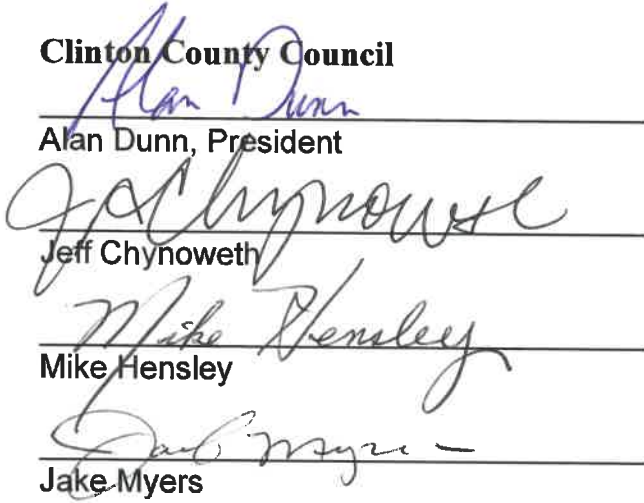 Clinton County Council
Alan Dunn
Alan Dunn, President
Jeff Chynoweth
Jeff Chynoweth
Mike Hensley
Mike Hensley
Jake Myers
Jake Myers